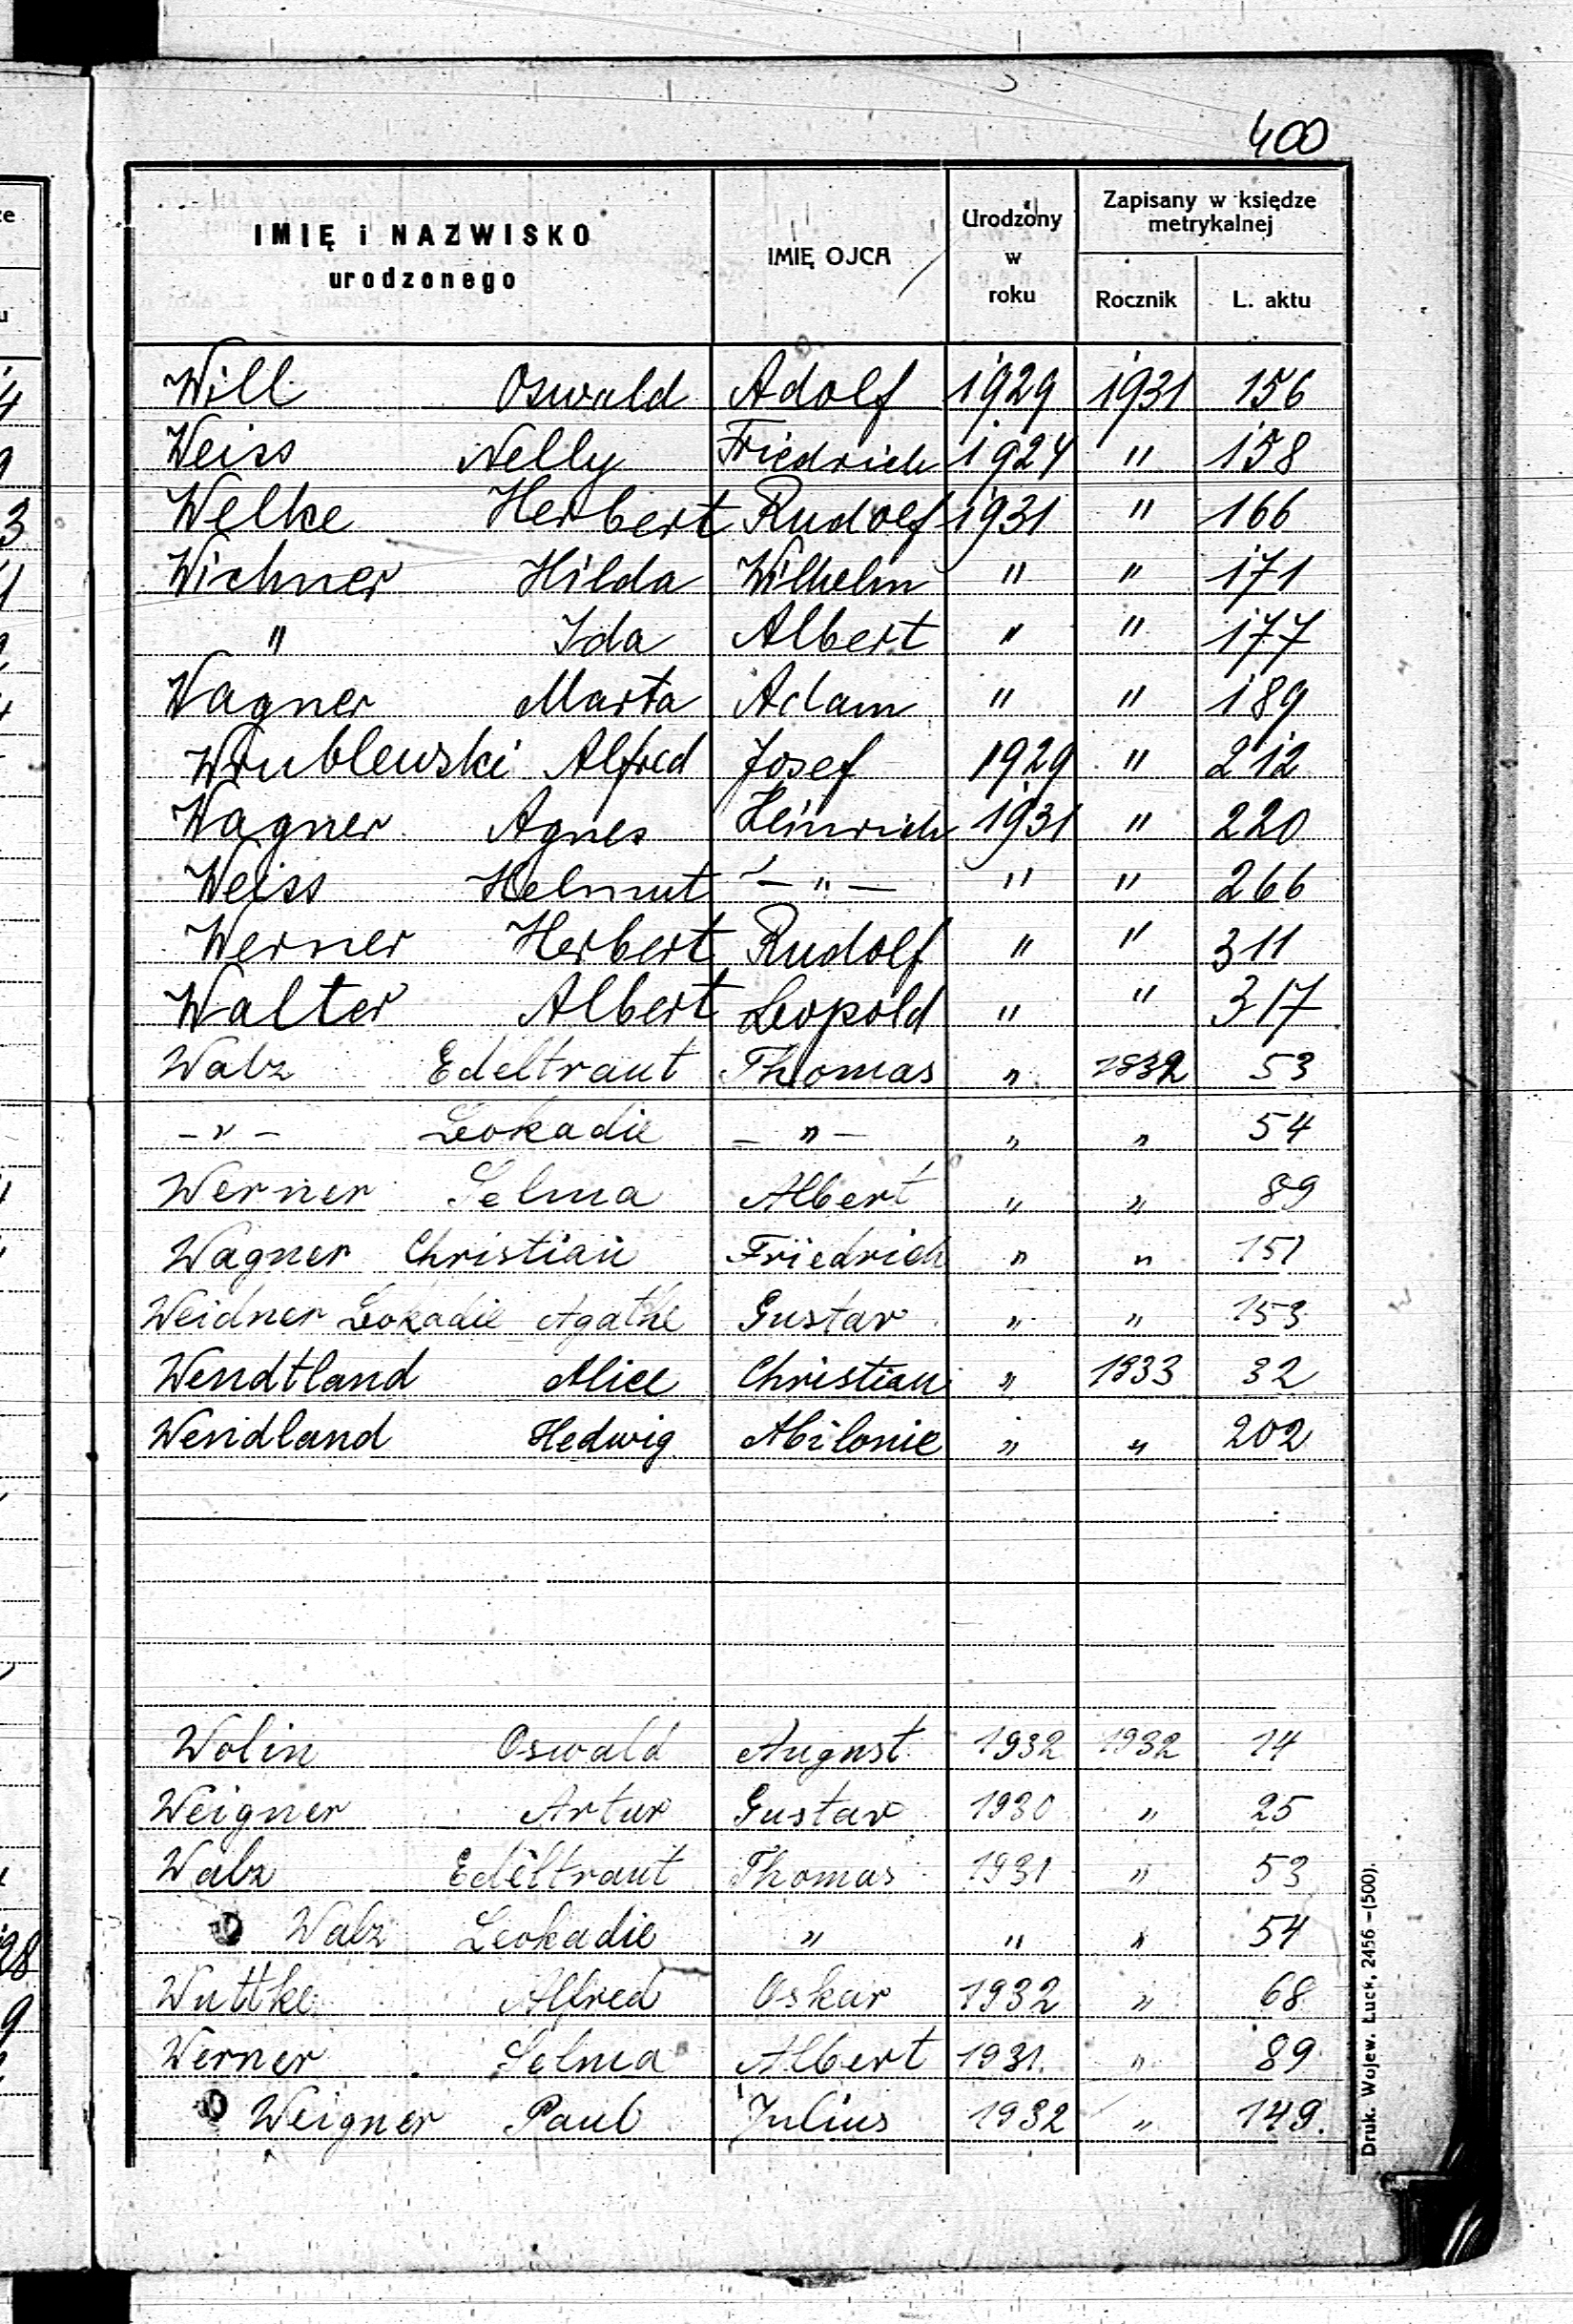 400
IMIĘ i NAZWISKO urodzonego IMIĘ OJCA Urodzony w roku Zapisany w księdze metrykalnej
Rocznik L. aktu
Will Oswald Adolf 1929 1931 156
Weiss Nelly Friedrich 1924 " 158
Welke Herbert Rudolf 1931 " 166
Wichner Hilda Wilhelm " " 171
" Ida Albert " " 177
Wagner Marta Adam " " 189
Wrublewski Alfred Josef 1929 " 212
Wagner Agnes Heinrich 1931 " 220
Weiss Helmut — " — " " 266
Werner Herbert Rudolf " " 311
Walter Albert Leopold " " 317
Walz Edeltraut Thomas " 1932 53
— " — Leokadie — " — " " 54
Werner Selma Albert " " 89
Wagner Christian Friedrich " " 151
Weidner Leokadie Agathe Gustav " " 153
Wendtland Alice Christian " 1933 32
Wendland Hedwig " " 202
Wolin Oswald August 1932 1932 14
Weigner Artur Gustav 1930 " 25
Walz Edeltraut Thomas 1931 " 53
Walz Leokadie " " " 54
Wuttke Alfred Oskar 1932 " 68
Werner Selma Albert 1931. " 89
Weigner Paul Julius 1932 " 149.
Druk. Wojew. Łuck, 2456 – (500).